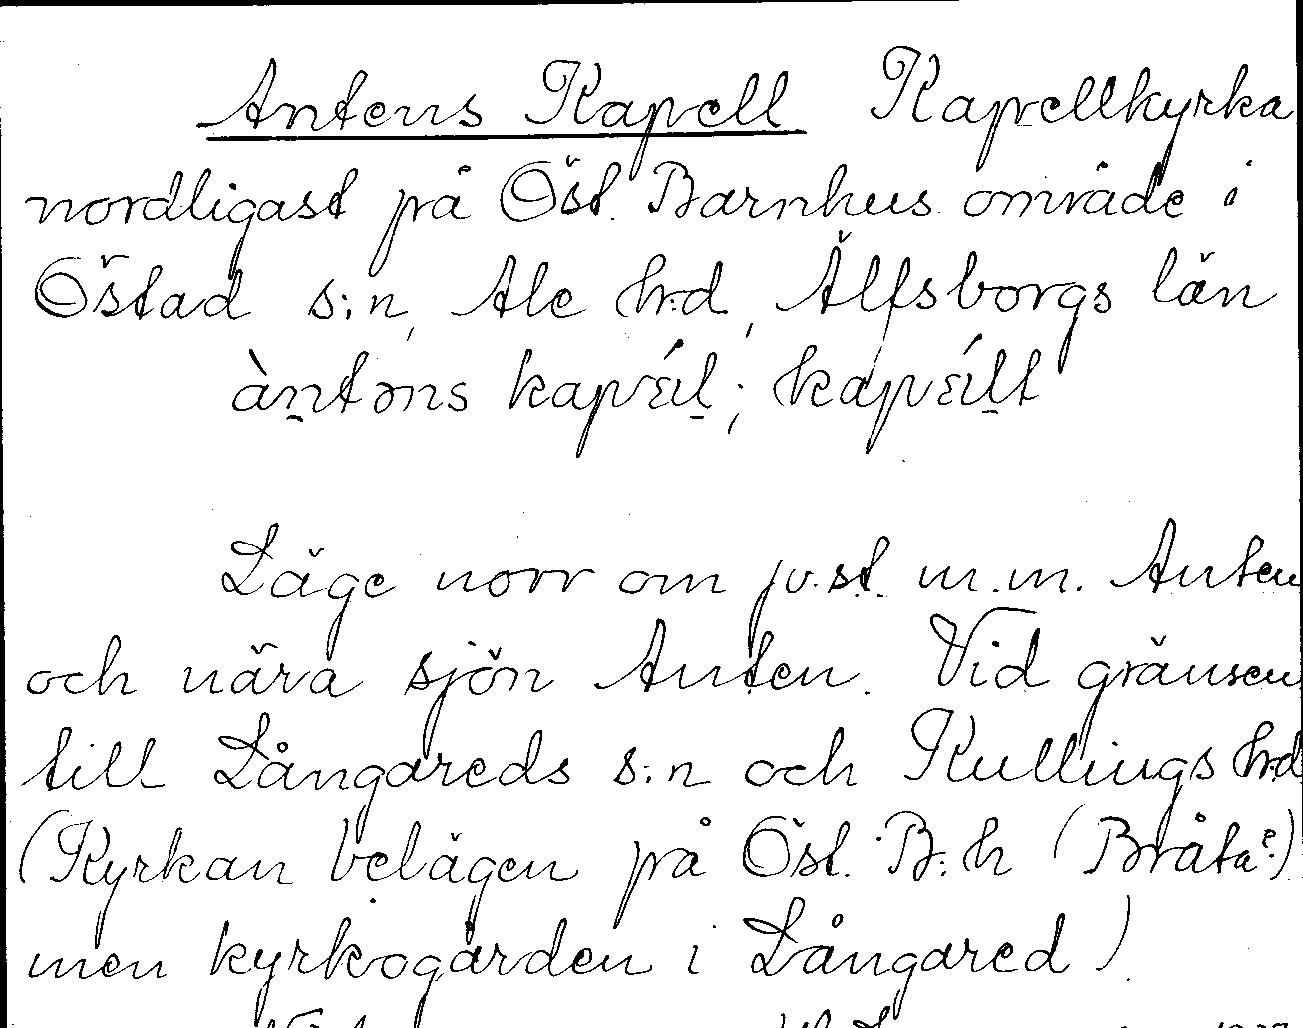 Antens Kapell Kapellkyrka
nordligast på Öst. Barnhus område i
Östad s:n, Ale h:d, Älfsborgs län
àntəns kapéll; kapéllt
Läge norr om jv.st. m.m. Anten
och nära sjön Anten. Vid gränsen
till Långareds s:n och Kullings h:d
(Kyrkan belägen på Öst. B:h (Bråta?)
men kyrkogården i Långared)